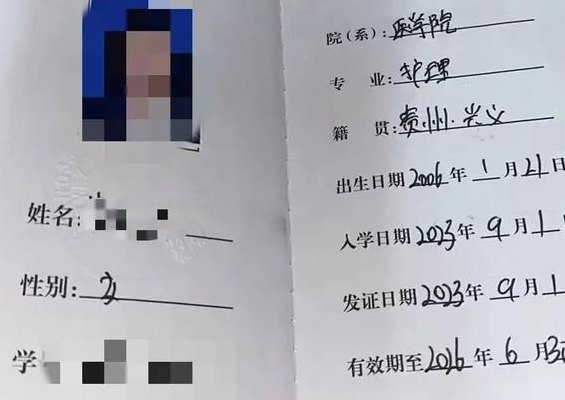 姓名:
性别: 女
学
院(系): 医学院
专 业: 护理
籍 贯: 贵州·兴义
出生日期 2006年 1月21日
入学日期 2023年 9月1
发证日期 2023年 9月1
有效期至 2026年 6月30